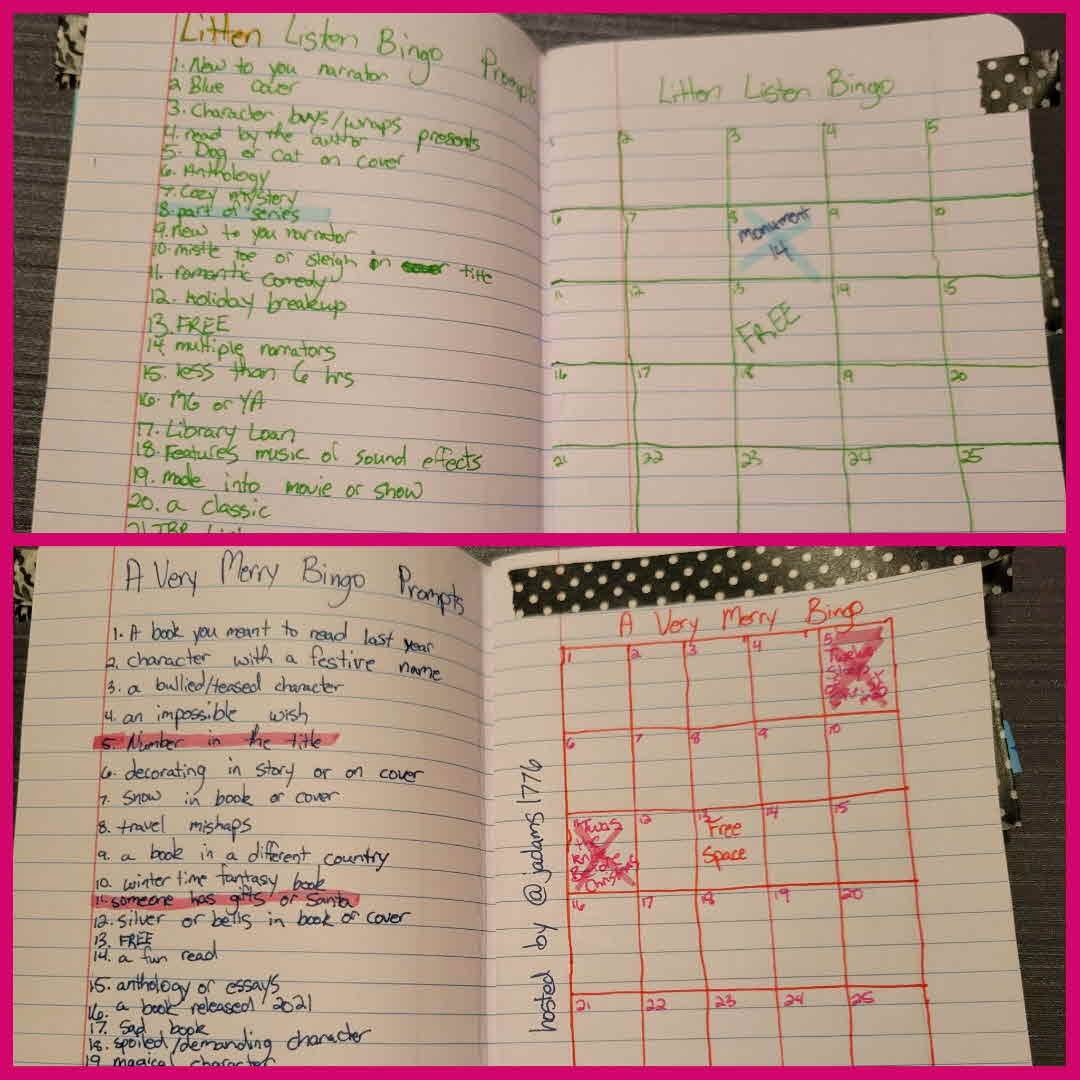 Litten Listen Bingo Prompts
1. New to you narrator
2 Blue Cover
3. Character buys/wraps presents
4. read by the author
5. Dog or Cat on cover
6. Anthology
7. Cozy mystery
8. part of series
9. new to you narrator
10. mistle toe or sleigh in title
11. romantic comedy
12. Holiday breakup
13. FREE
14. multiple narrators
15. less than 6 hrs
16. MG or YA
17. Library Loan
18. Features music or sound effects
19. made into movie or show
20. a classic
21. TBR
Litten Listen Bingo
1 2 3 4 5
6 7 8 9 10
monument
14
11 12 13 14 15
FREE
16 17 18 19 20
21 22 23 24 25
A Very Merry Bingo Prompts
1. A book you meant to read last year
2. character with a festive name
3. a bullied/teased character
4. an impossible wish
5. Number in the title
6. decorating in story or on cover
7. Snow in book or cover
8. travel mishaps
9. a book in a different country
10. winter time fantasy book
11. someone has gifts or Santa
12. silver or bells in book or cover
13. FREE
14. a fun read
15. anthology or essays
16. a book released 2021
17. Sad book
18. spoiled/demanding character
19 magical character
A Very Merry Bingo
1 2 3 4 5
Twelve
6 7 8 9 10
12 13 14 15
Twas
the
Before
Christmas
Free
Space
16 17 18 19 20
21 22 23 24 25
hosted by @jadams1776